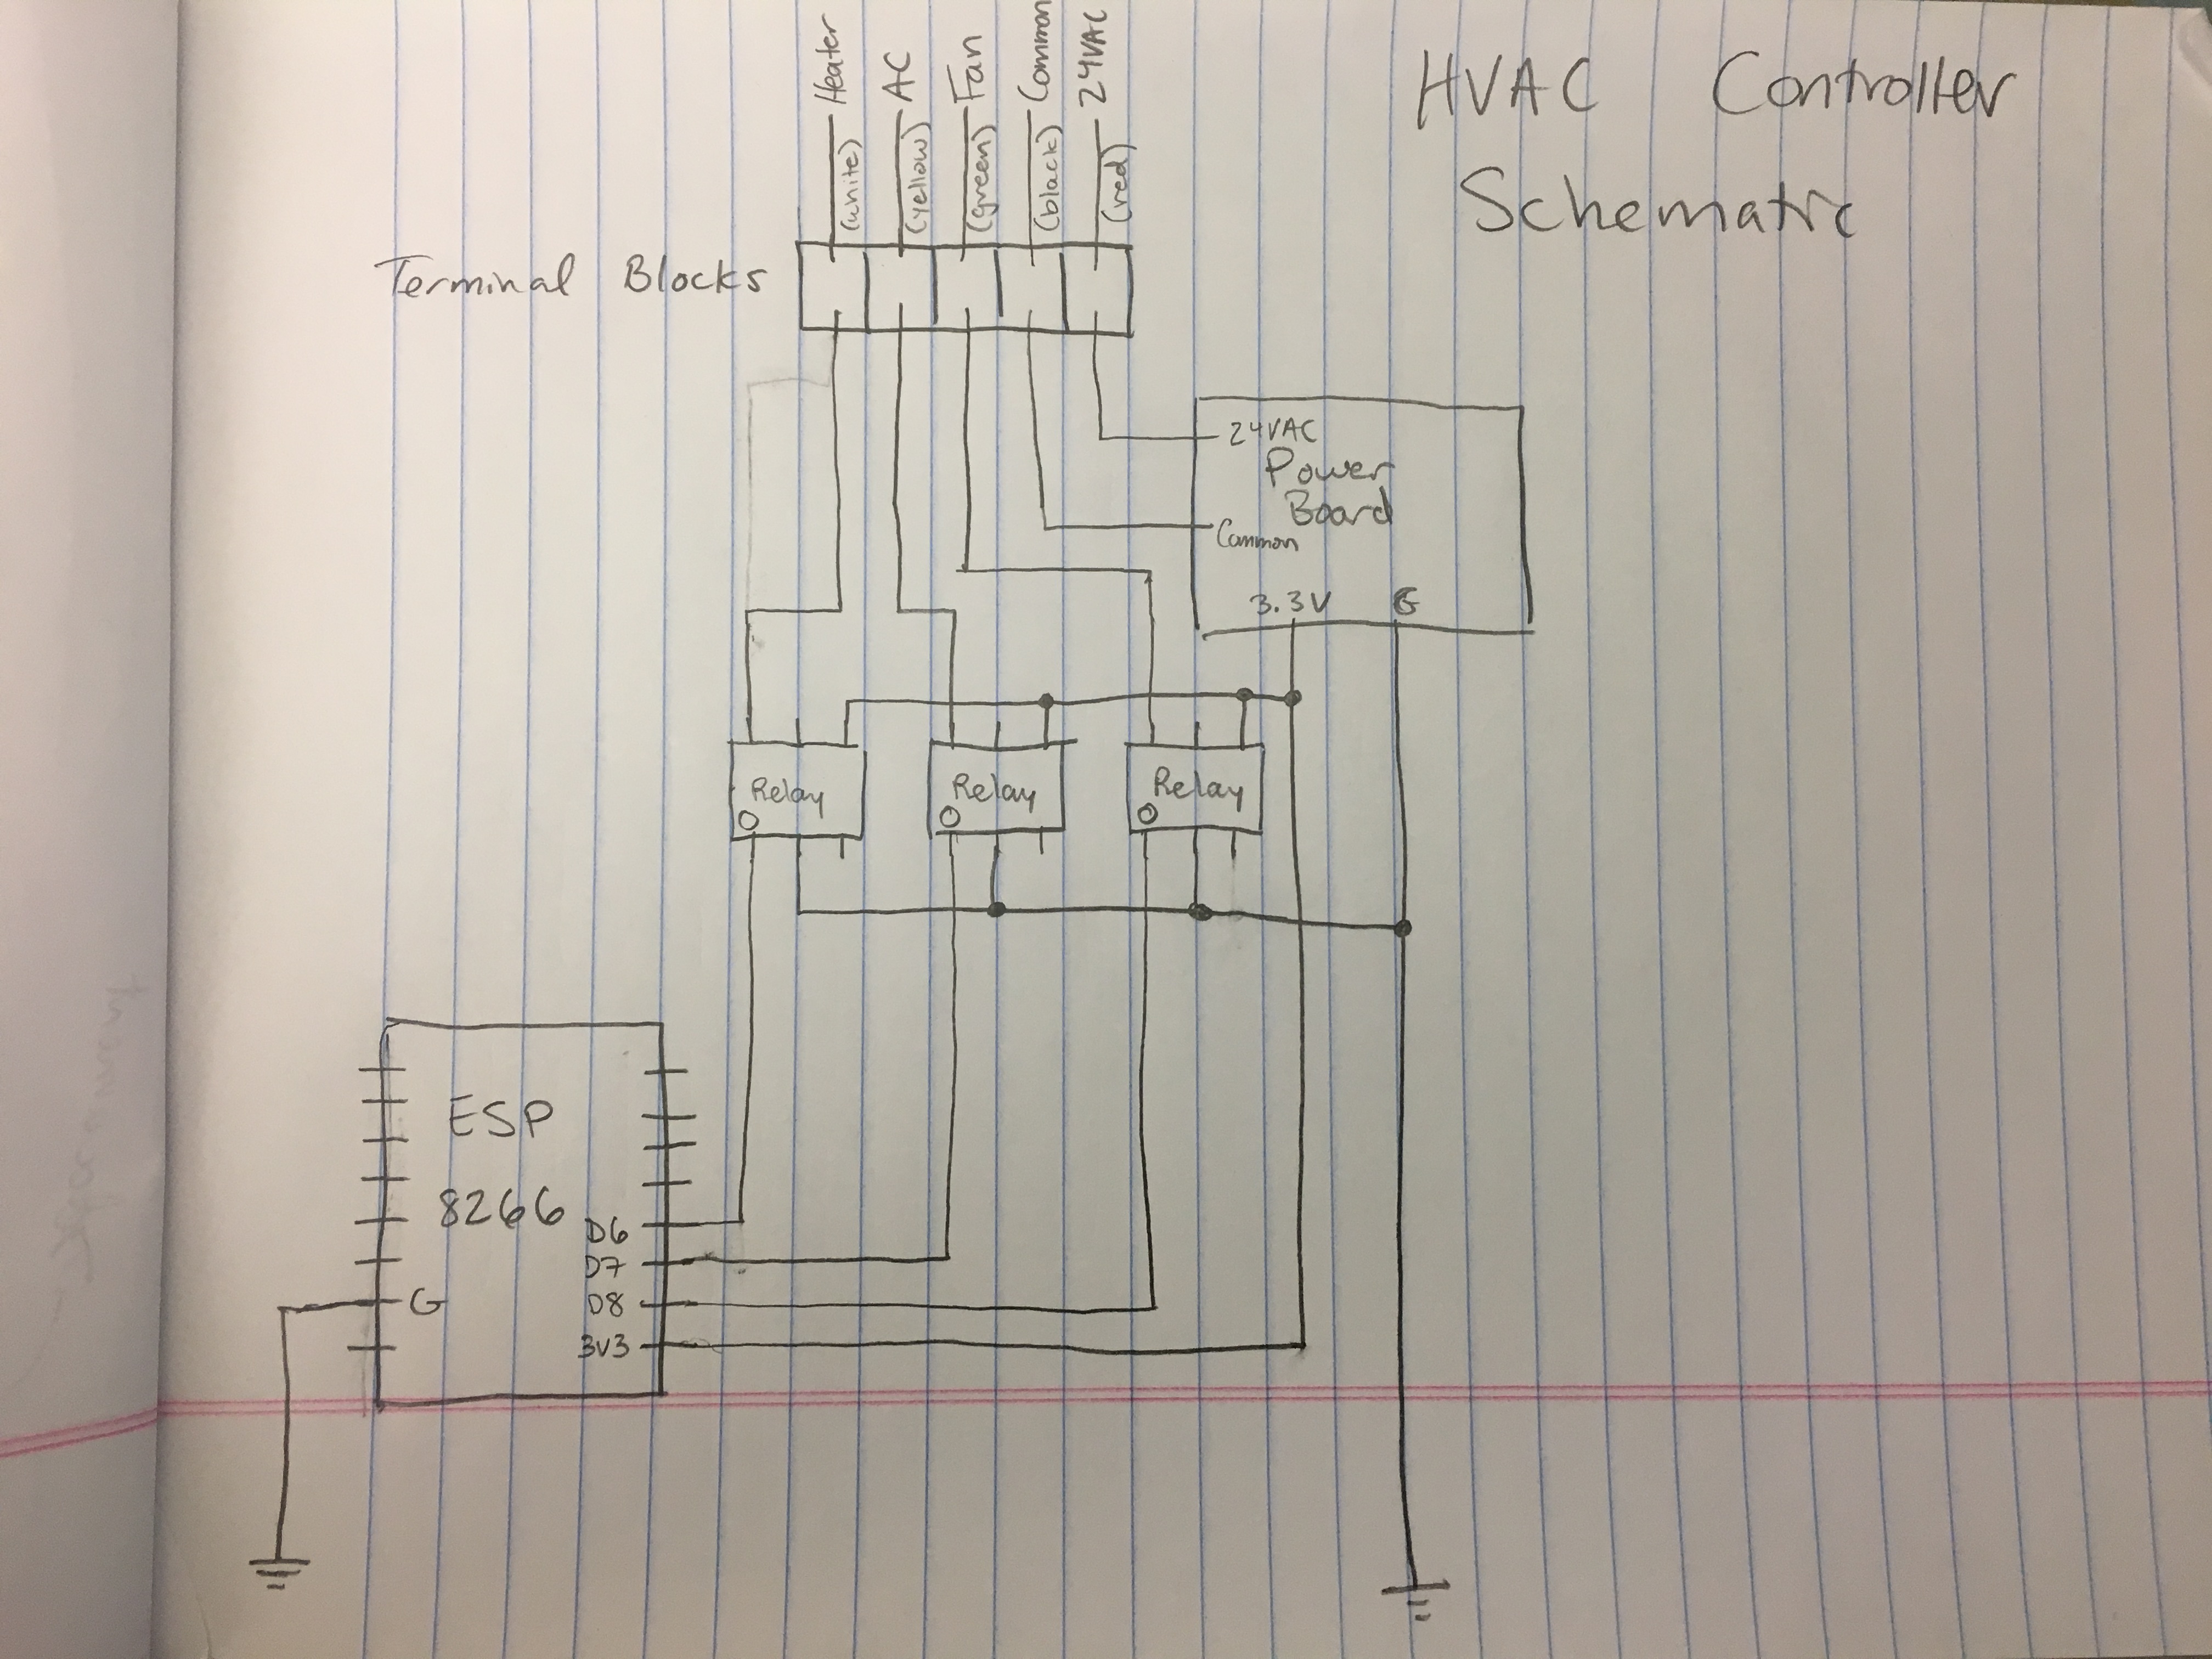 HVAC Controller
Schematic
Heater
(white)
AC
(yellow)
Fan
(green)
Common
(black)
24VAC
(red)
Terminal Blocks
24VAC
Power
Board
Common
3.3V G
Relay
Relay
Relay
ESP
8266
D6
D7
G
D8
3V3